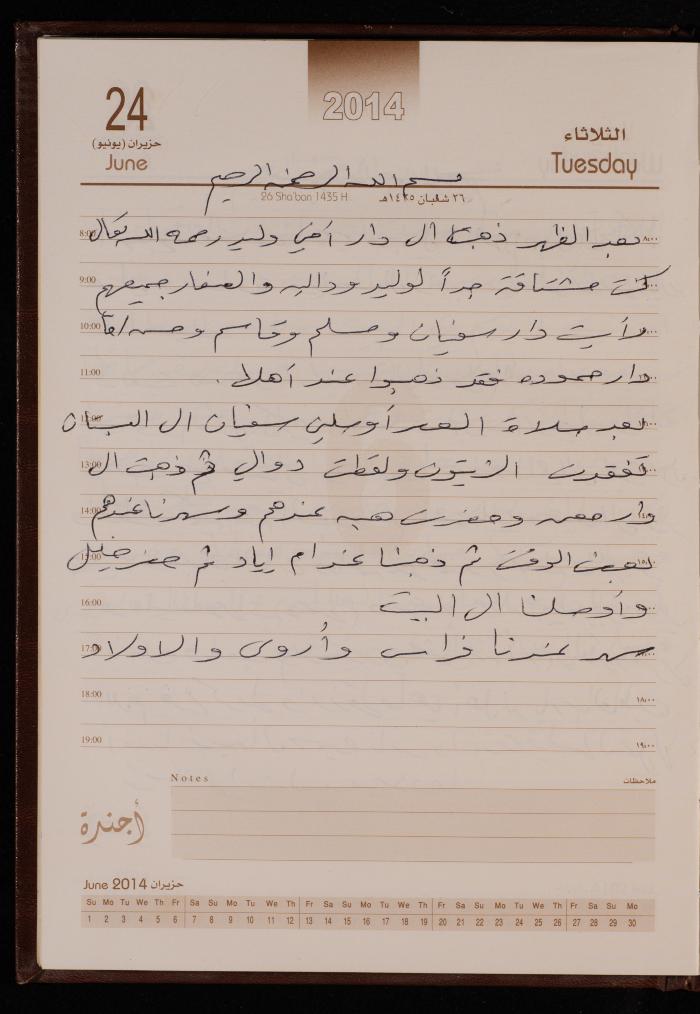 2014
24
حزيران (يونيو)
June
الثلاثاء
Tuesday
بسم الله الرحمن الرحيم
26 Sha'ban 1435 H
٢٦ شعبان ١٤٣٥هـ
8:00 بعد الظهر ذهبت ال دار أخي وليد رحمه الله تعالى ٨:٠٠
9:00 كنت مشتاقة جداً لوليد ودالية والصغار جميعهم
10:00 رأيت دار سفيان ومسلم وقاسم وحسن اما
11:00 دار حموده فقد ذهبوا عند أهلها .
بعد صلاة العصر أوصلني سفيان ال البستان
13:00 تفقدت الزيتون ولقطت دوالي ثم ذهبت ال
14:00 دار وحضرت هبه عندهم وسهرنا عندهم
15:00 بعض الوقت ثم ذهبنا عند ام اياد ثم حضر خليل
16:00 وأوصلنا ال البيت
17:00 سهر عندنا فراس وأروى والاولاد
18:00 ١٨:٠٠
19:00 ١٩:٠٠
Notes
ملاحظات
أجندة
June 2014 حزيران
Su Mo Tu We Th Fr Sa Su Mo Tu We Th Fr Sa Su Mo Tu We Th Fr Sa Su Mo Tu We Th Fr Sa Su Mo
1 2 3 4 5 6 7 8 9 10 11 12 13 14 15 16 17 18 19 20 21 22 23 24 25 26 27 28 29 30